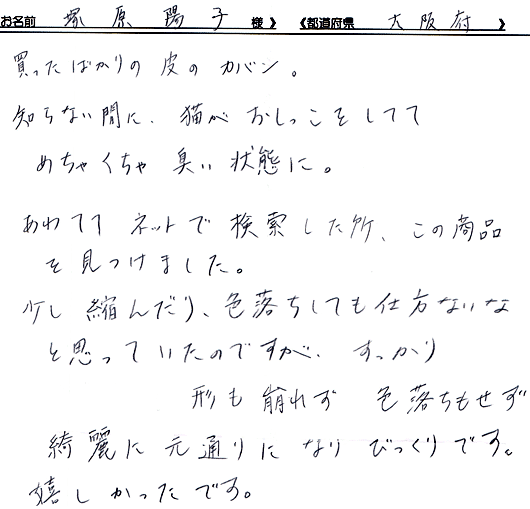 お名前 塚原陽子 様 》 《都道府県 大阪府 》
買ったばかりの皮のカバン。
知らない間に、猫がおしっこをしてて
めちゃくちゃ臭い状態に。
あわてて ネットで検索した所、この商品
を見つけました。
少し縮んだり、色落ちしても仕方ないな
と思っていたのですが、すっかり
形も崩れず 色落ちもせず
綺麗に元通りになりびっくりです。
嬉しかったです。